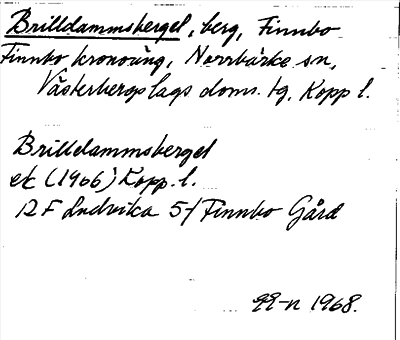 Brilldammsberget, berg, Finnbo
Finnbo kronoäng, Norrbärke sn,
Västerbergslags doms. tg, Kopp l.
Brilldammsberget
ek (1966) Kopp. l.
12 F Ludvika 5f Finnbo Gård
1968.